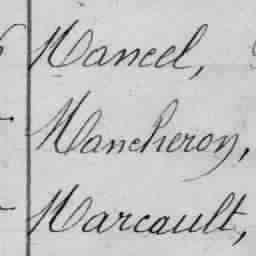 Mancel,
Mancheron,
Marcault,